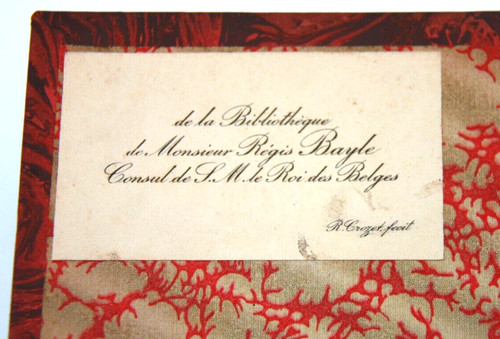 de la Bibliothèque
de Monsieur Régis Bayle
Consul de S. M. le Roi des Belges
R. Crozet, fecit